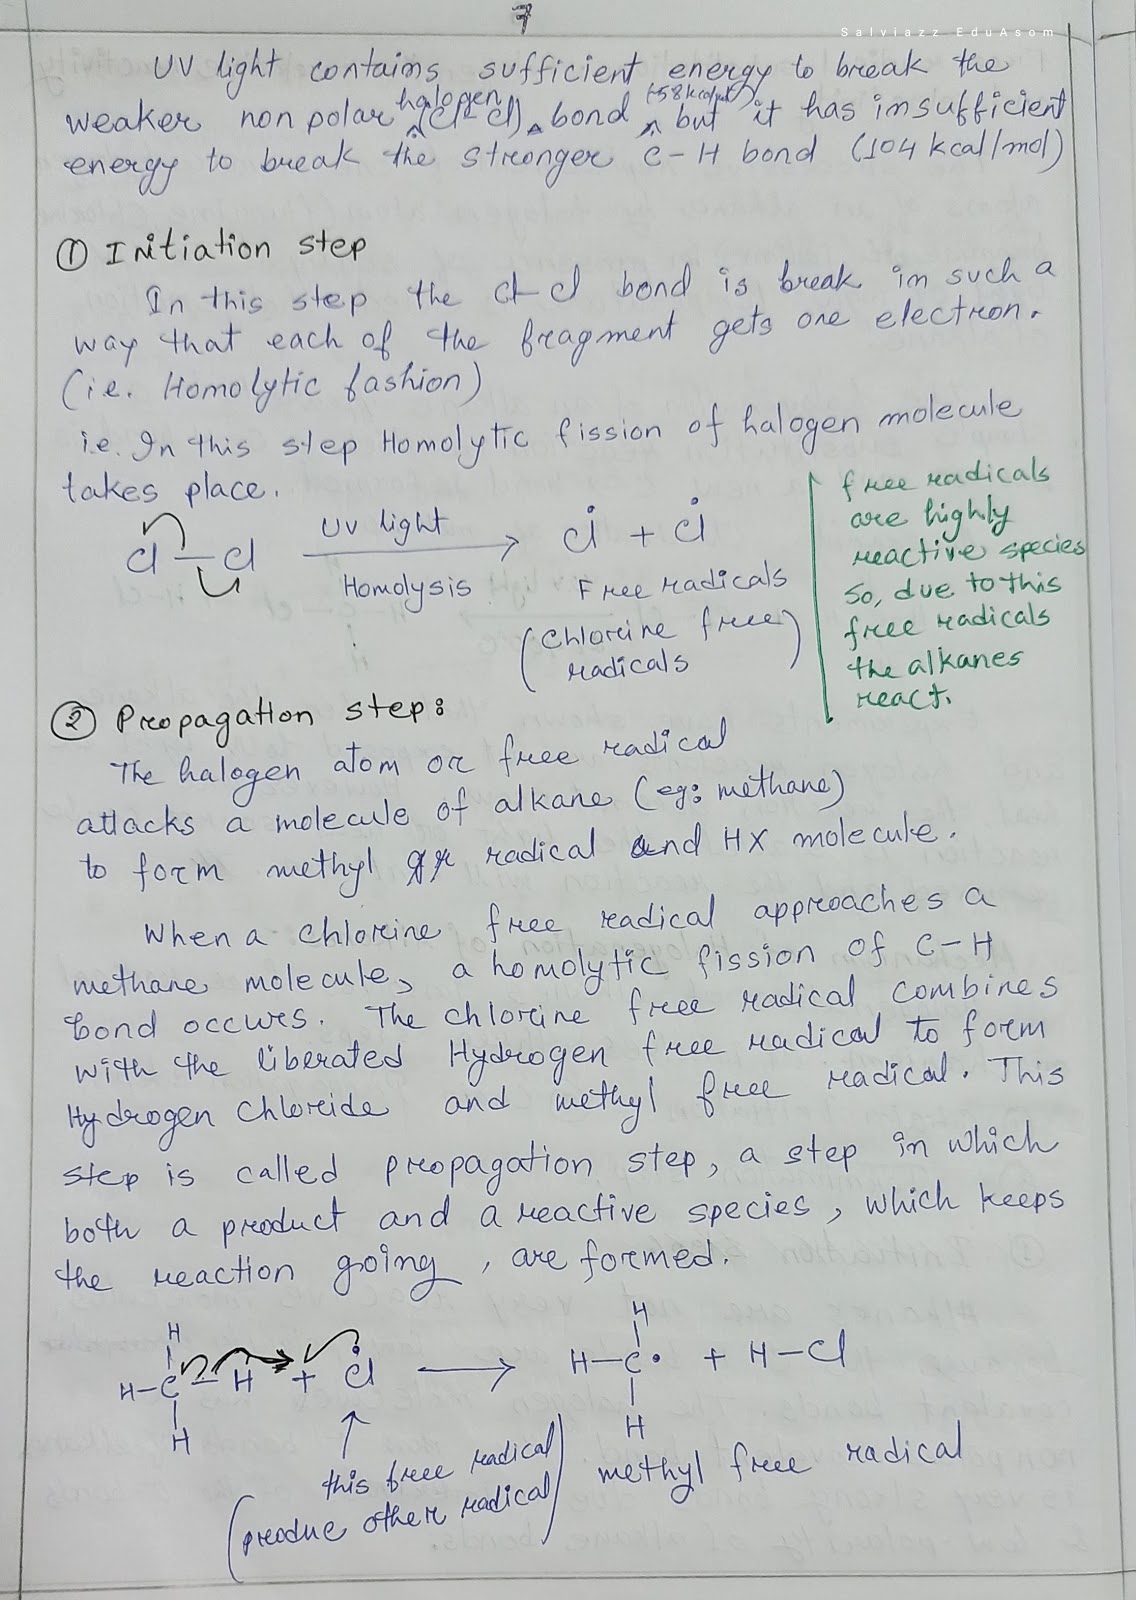 7
Salviazz EduAsom
UV light contains sufficient energy to break the
weaker non polar halogen (Cl-Cl) bond (58 kcal/mol) but it has insufficient
energy to break the stronger C-H bond (104 kcal/mol)
① Initiation step
In this step the Cl-Cl bond is break in such a
way that each of the fragment gets one electron.
(i.e. Homolytic fashion)
i.e. In this step Homolytic fission of halogen molecule
takes place.
Cl-Cl UV light Homolysis → Cl• + Cl•
Free radicals
(Chlorine free
radicals)
free radicals
are highly
reactive species
so, due to this
free radicals
the alkanes
react.
② Propagation step:
The halogen atom or free radical
attacks a molecule of alkane (eg: methane)
to form methyl radical and HX molecule.
When a chlorine free radical approaches a
methane molecule, a homolytic fission of C-H
bond occurs. The chlorine free radical combines
with the liberated Hydrogen free radical to form
Hydrogen Chloride and methyl free radical. This
step is called propagation step, a step in which
both a product and a reactive species, which keeps
the reaction going, are formed.
H H
H-C-H + Cl• → H-C• + H-Cl
H H
this free radical
(produce other radical)
methyl free radical